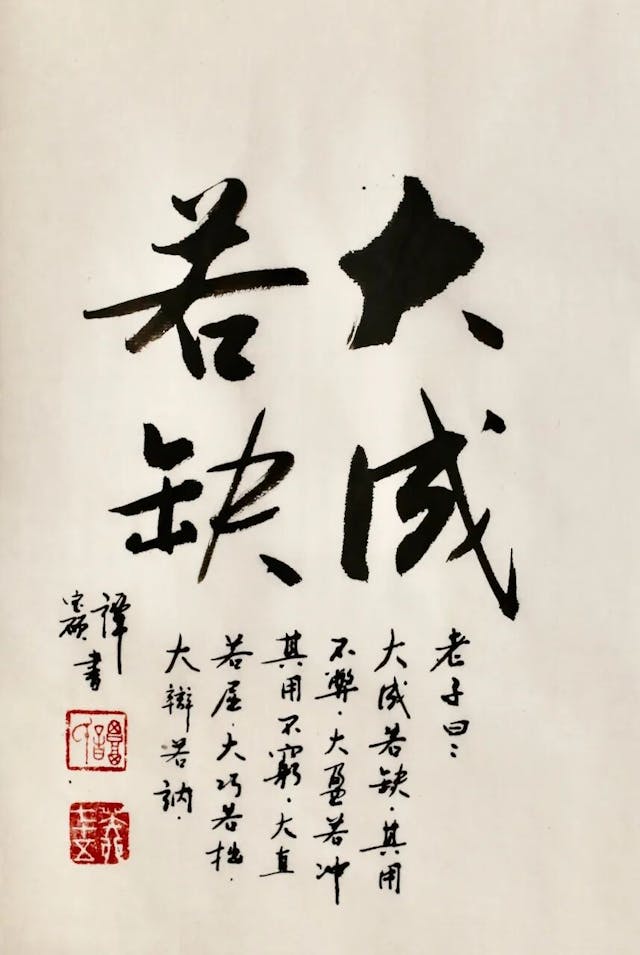 大成
若缺
老子曰：
大成若缺．其用
不弊．大盈若冲
其用不窮．大直
若屈．大巧若拙．
大辯若訥．
譚
書